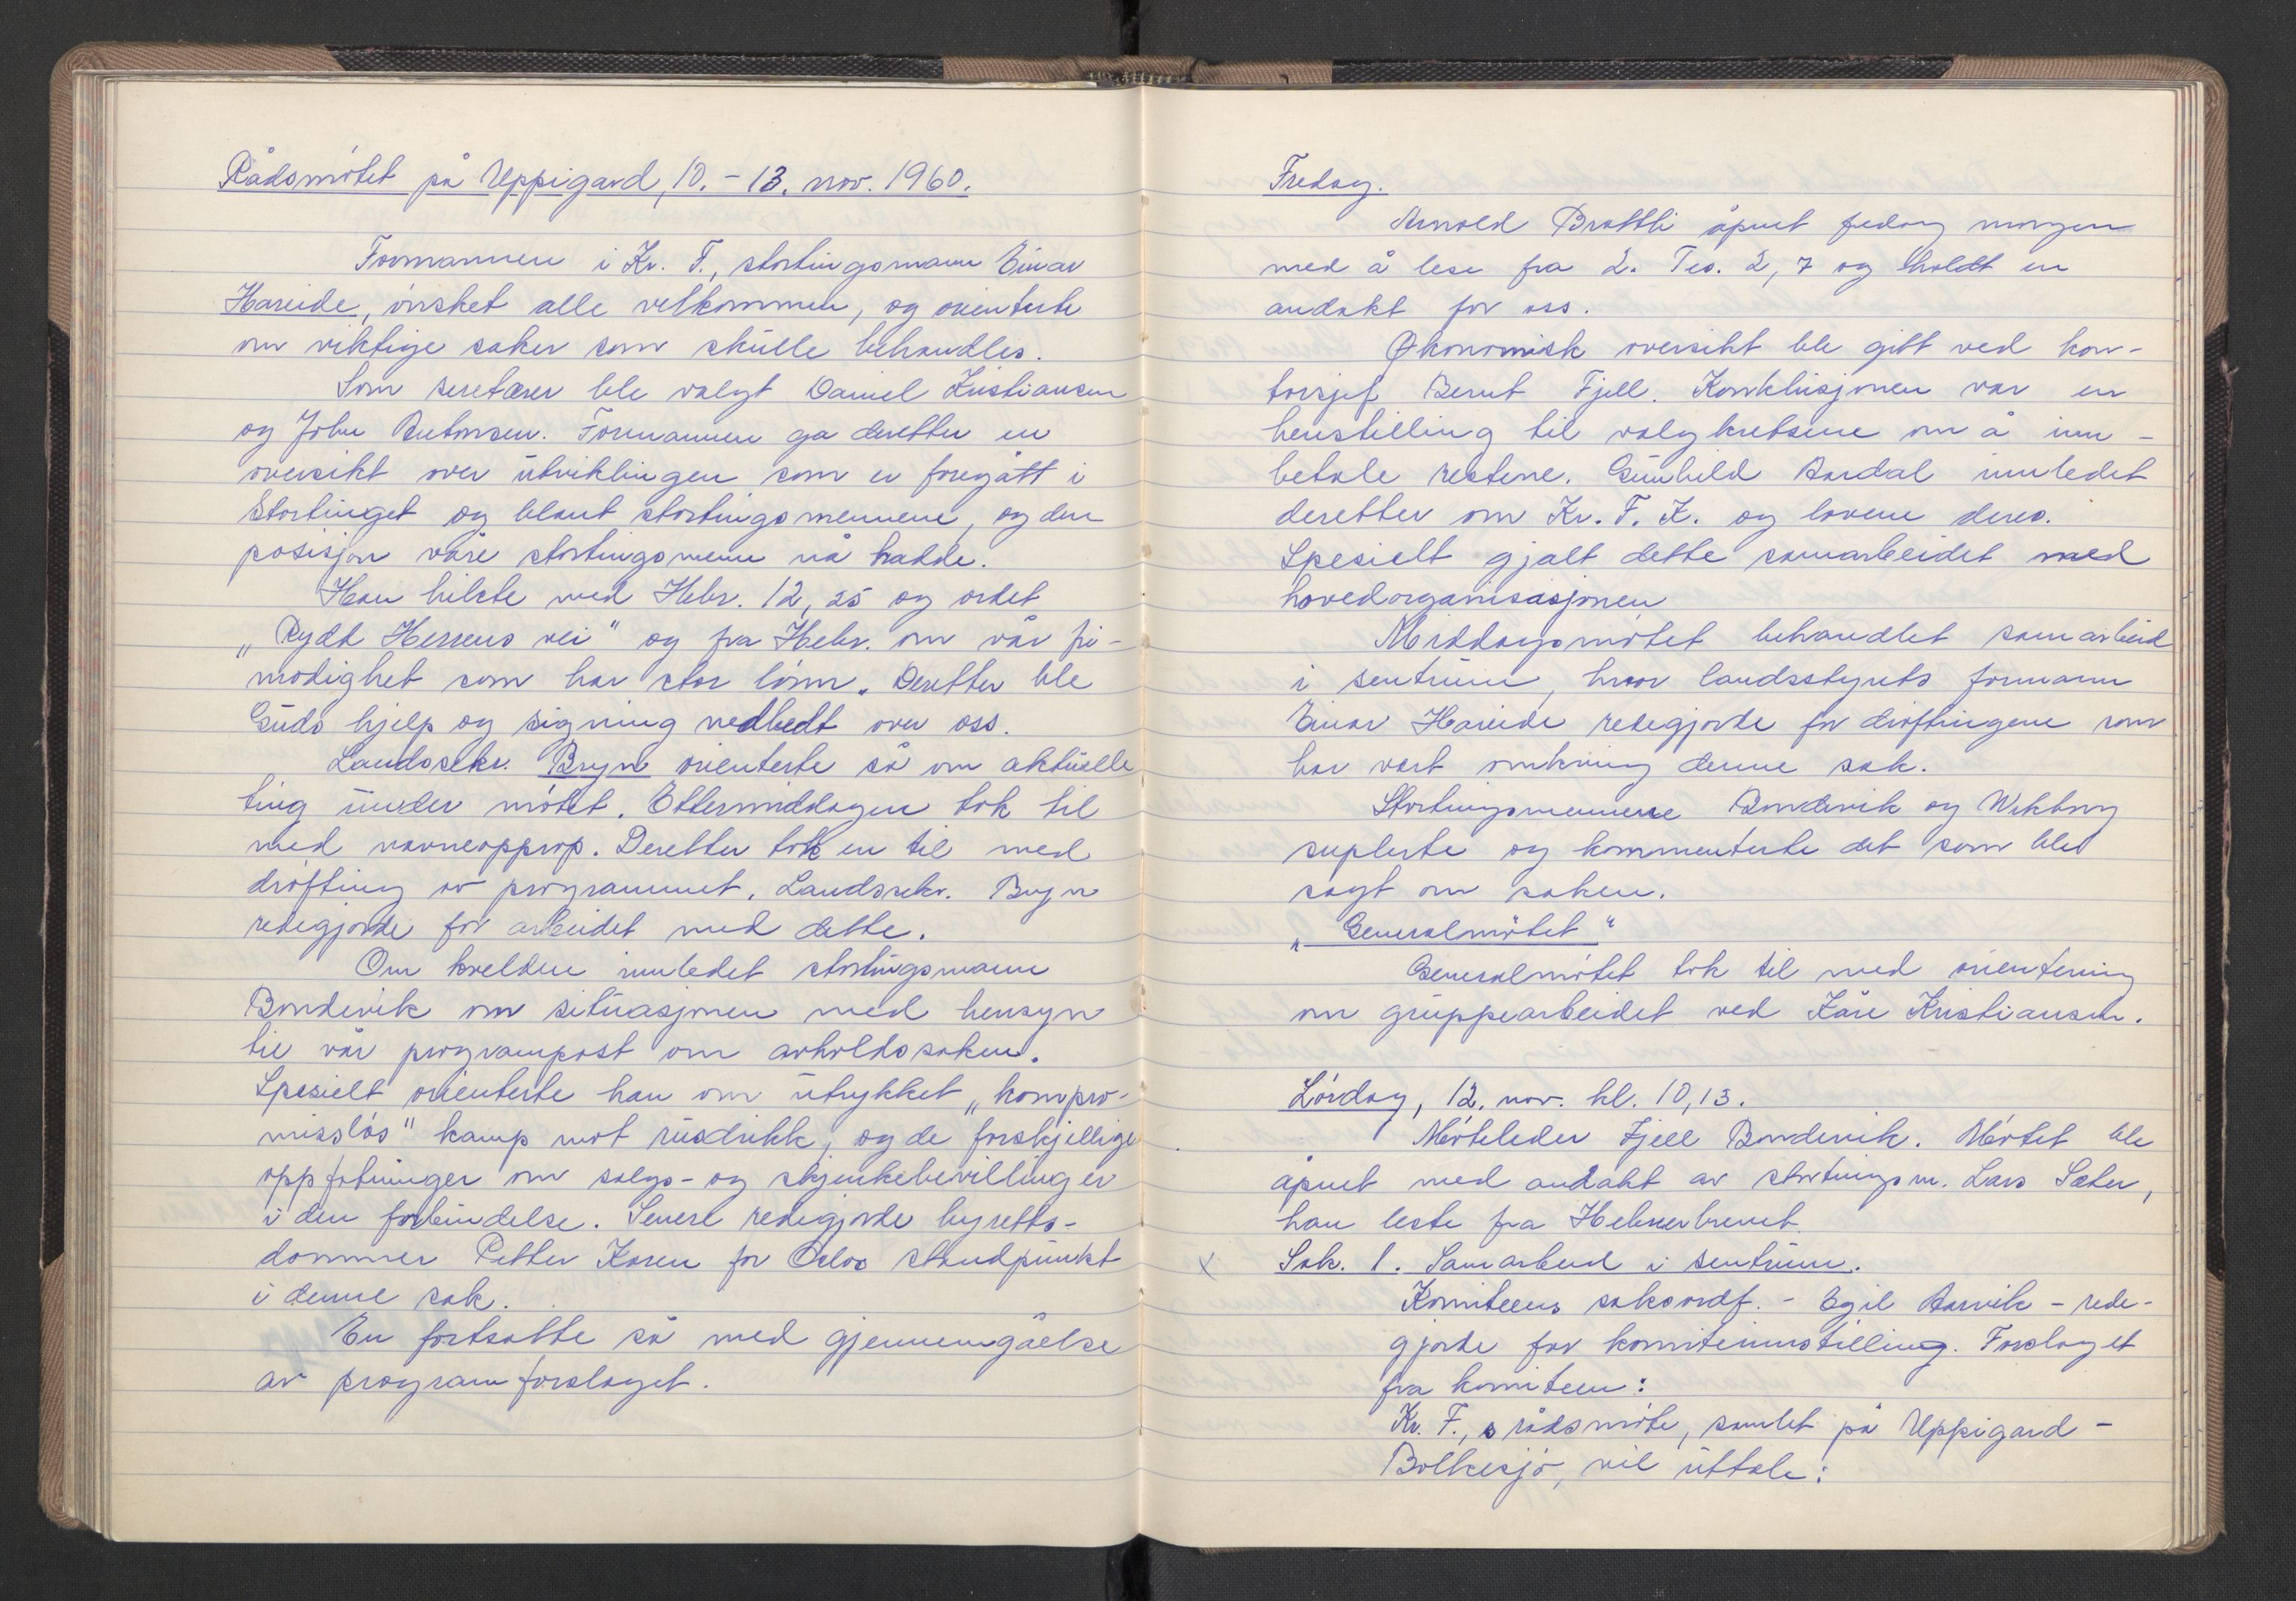 Rådsmøtet på Uppigard, 10.-13. nov. 1960.
Formannen i Kr. F., stortingsmann Einar
Hareide, ønsket alle velkommen, og orienterte
om viktige saker som skulle behandles.
Som seretærer ble valgt Daniel Kristiansen
og John Antonsen. Formannen ga deretter en
oversikt over utviklingen som er foregått i
Stortinget og blant stortingsmennene, og den
posisjon våre stortingsmenn nå hadde.
Han hilste med Hebr. 12, 25 og ordet
„Rydd Herrens vei" og fra Hebr. om vår fri-
modighet som har stor lønn. Deretter ble
Guds hjelp og signing nedbedt over oss.
Landssekr. Bryn orienterte så om aktuelle
ting under møtet. Ettermiddagen tok til
med navneopprop. Deretter tok en til med
drøfting av programmet. Landssekr. Bryn
redegjorde for arbeidet med dette.
Om kvelden innledet stortingsmann
Bondevik om situasjonen med hensyn
til vår programpost om avholdssaken.
Spesielt orienterte han om utrykket „kompro-
missløs" kamp mot rusdrikk, og de forskjellige
oppfatninger om salgs- og skjenkebevillinger
i den forbindelse. Senere redegjorde byretts-
dommer Petter Koren for Oslos standpunkt
i denne sak.
En fortsatte så med gjennemgåelse
av programforslaget.
Fredag.
Arnold Brattli åpnet fredag morgen
med å lese fra 2. Tes. 2, 7 og holdt en
andakt for oss.
Økonomisk oversikt ble gitt ved kon-
torsjef Bernt Fjell. Konklusjonen var en
henstilling til valgkretsene om å inn-
betale restene. Gunhild Aardal innledet
deretter om Kr. F. K. og lovene deres.
Spesielt gjalt dette samarbeidet med
hovedorganisasjonen
Middagsmøtet behandlet samarbeid
i sentrum, hvor landsstyrets formann
Einar Hareide redegjorde for drøftingene som
har vært omkring denne sak.
Stortingsmennene Bondevik og Wikborg
suplerte og kommenterte det som ble
sagt om saken.
„Generalmøtet"
Generalmøtet tok til med orientering
om gruppearbeidet ved Kåre Kristiansen.
Lørdag, 12. nov. kl. 10,13.
Møteleder Kjell Bondevik. Møtet ble
åpnet med andakt av stortingsm. Lars Sæter,
han leste fra Hebreerbrevet
x Sak. 1. Samarbeid i sentrum.
Komiteens saksordf. - Egil Aarvik - rede-
gjorde for komiteinnstilling. Forslaget
fra komiteen:
Kr. F., s rådsmøte, samlet på Uppigard -
Bolkesjø, vil uttale: